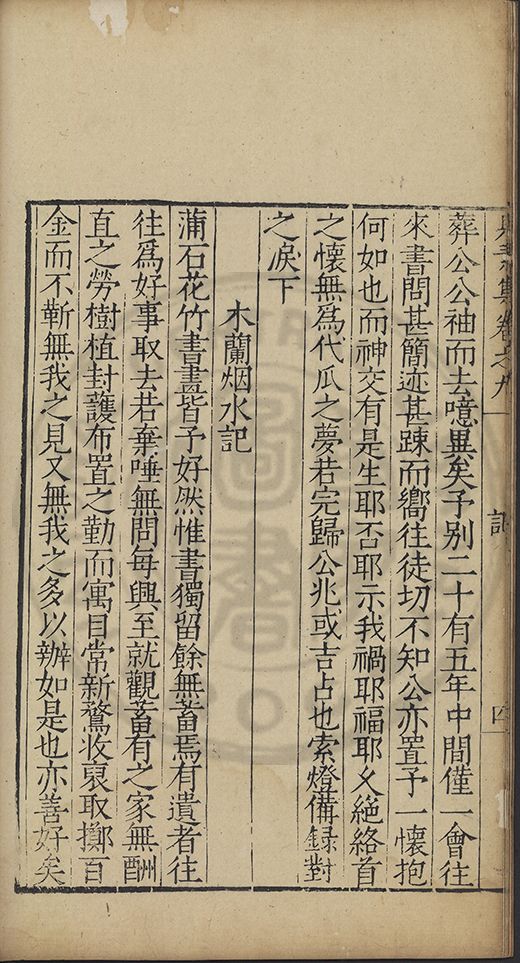 卷之九 四
葬公公袖而去噫異矣予別二十有五年中間僅一會往
來書問甚簡迹甚踈而嚮往徒切不知公亦置予一懷抱
何如也而神交有是生耶否耶示我禍耶福耶乆絕絡首
之懷無爲代瓜之夢若完歸公兆或吉占也索燈備録對
之淚下
木蘭烟水記
蒲石花竹書畫皆予好然惟書獨留餘無蓄焉有遺者往
往爲好事取去若棄唾無問每興至就觀蓄有之家無酬
直之勞樹植封護布置之勤而寓目常新騖收裒取擲百
金而不靳無我之見又無我之多以辦如是也亦善好矣